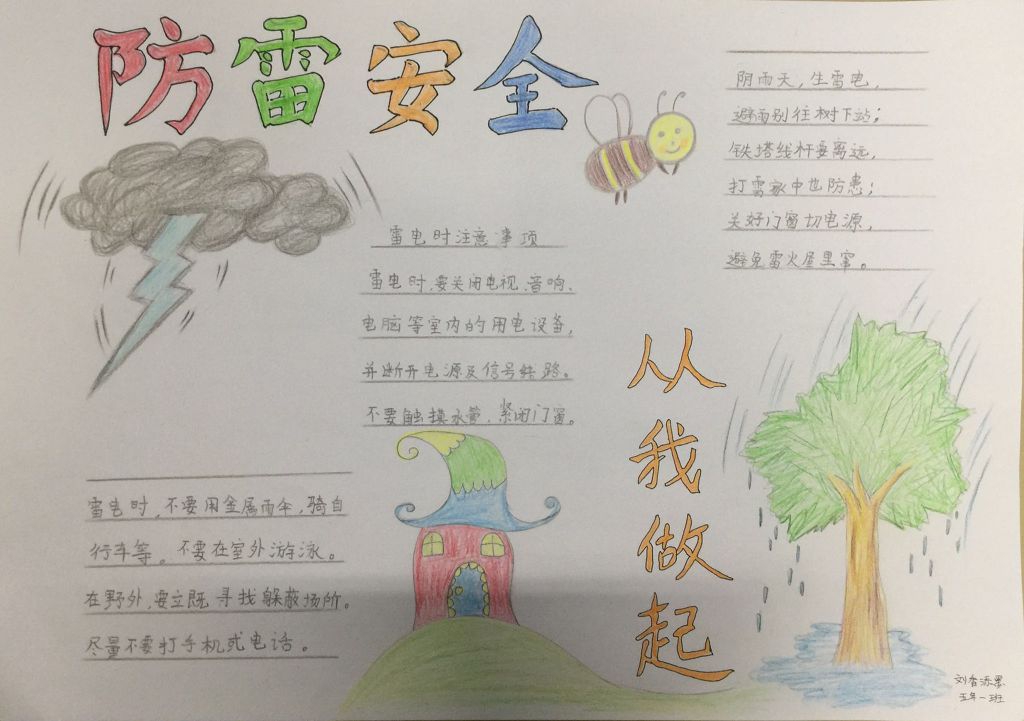 防雷安全
阴雨天，生雷电，
避雨别往树下站；
铁塔线杆要离远，
打雷家中也防患；
关好门窗切电源，
避免雷火屋里窜。
雷电时注意事项
雷电时，要关闭电视、音响、
电脑等室内的用电设备，
并断开电源及信号线路。
不要触摸水管，紧闭门窗。
从我做起
雷电时，不要用金属雨伞，骑自
行车等。不要在室外游泳。
在野外，要立既寻找躲蔽场所。
尽量不要打手机或电话。
刘
五年一班